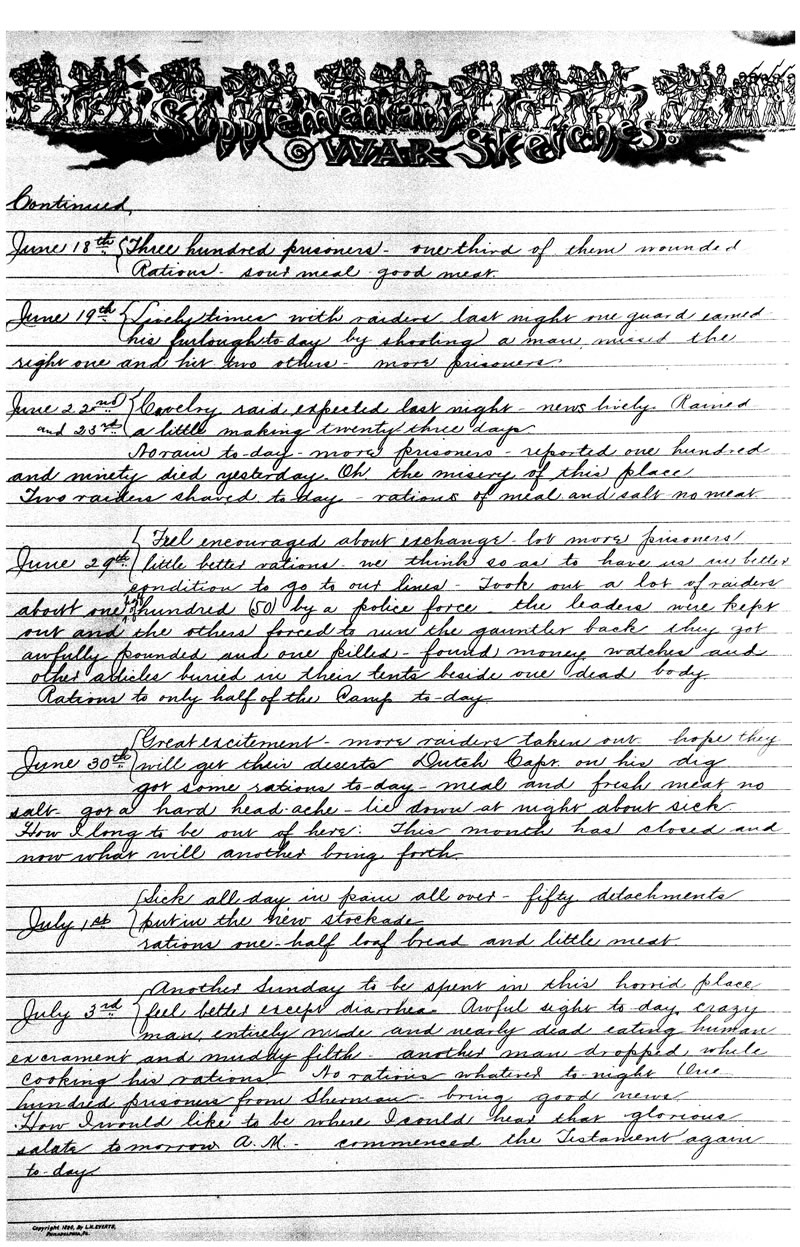 Supplementary
WAR Sketches.
Continued,
June 18th Three hundred prisoners - one third of them wounded
Rations - sour meal - good meat.
June 19th Lively times with raiders last night one guard earned
his furlough to day by shooting a man missed the
right one and hit two others - more prisoners.
June 22nd Cavelry raid expected last night - news lively. Rained
and 23rd a little making twenty three days
No rain to-day - more prisoners - reported one hundred
and ninety died yesterday. Oh. the misery of this place
Two raiders shaved to-day - rations of meal and salt no meat.
Feel encouraged about exchange - lot more prisoners
June 29th little better rations - we think so as to have us in better
condition to go to our lines - Took out a lot of raiders
about one hundred (50) by a police force - the leaders were kept
out and the others forced to run the gauntlet back they got
awfully pounded and one killed - found money watches and
other articles buried in their tents beside one dead body.
Rations to only half of the Camp to-day.
Great excitement - more raiders taken out. hope they
June 30th will get their deserts Dutch Capt. on his dig
got some rations to-day - meal and fresh meat no
salt - got a hard head-ache - lie down at night about sick.
How I long to be out of here. This month has closed and
now what will another bring forth.
Sick all day in pain all over - fifty detachments
July 1st put in the new stockade
rations one-half loaf bread and little meat.
Another Sunday to be spent in this horrid place
July 3rd feel better except diarrhea. Awful sight to-day, crazy
man, entirely nude and nearly dead eating human
excrament and muddy filth - another man dropped while
cooking his rations. No rations whatever to-night One
hundred prisoners from Sherman - bring good news
How I would like to be where I could hear that glorious
salute tomorrow A.M. - commenced the Testament again
to-day
Copyright 1890, By L.H. EVERTS,
PHILADELPHIA, PA.